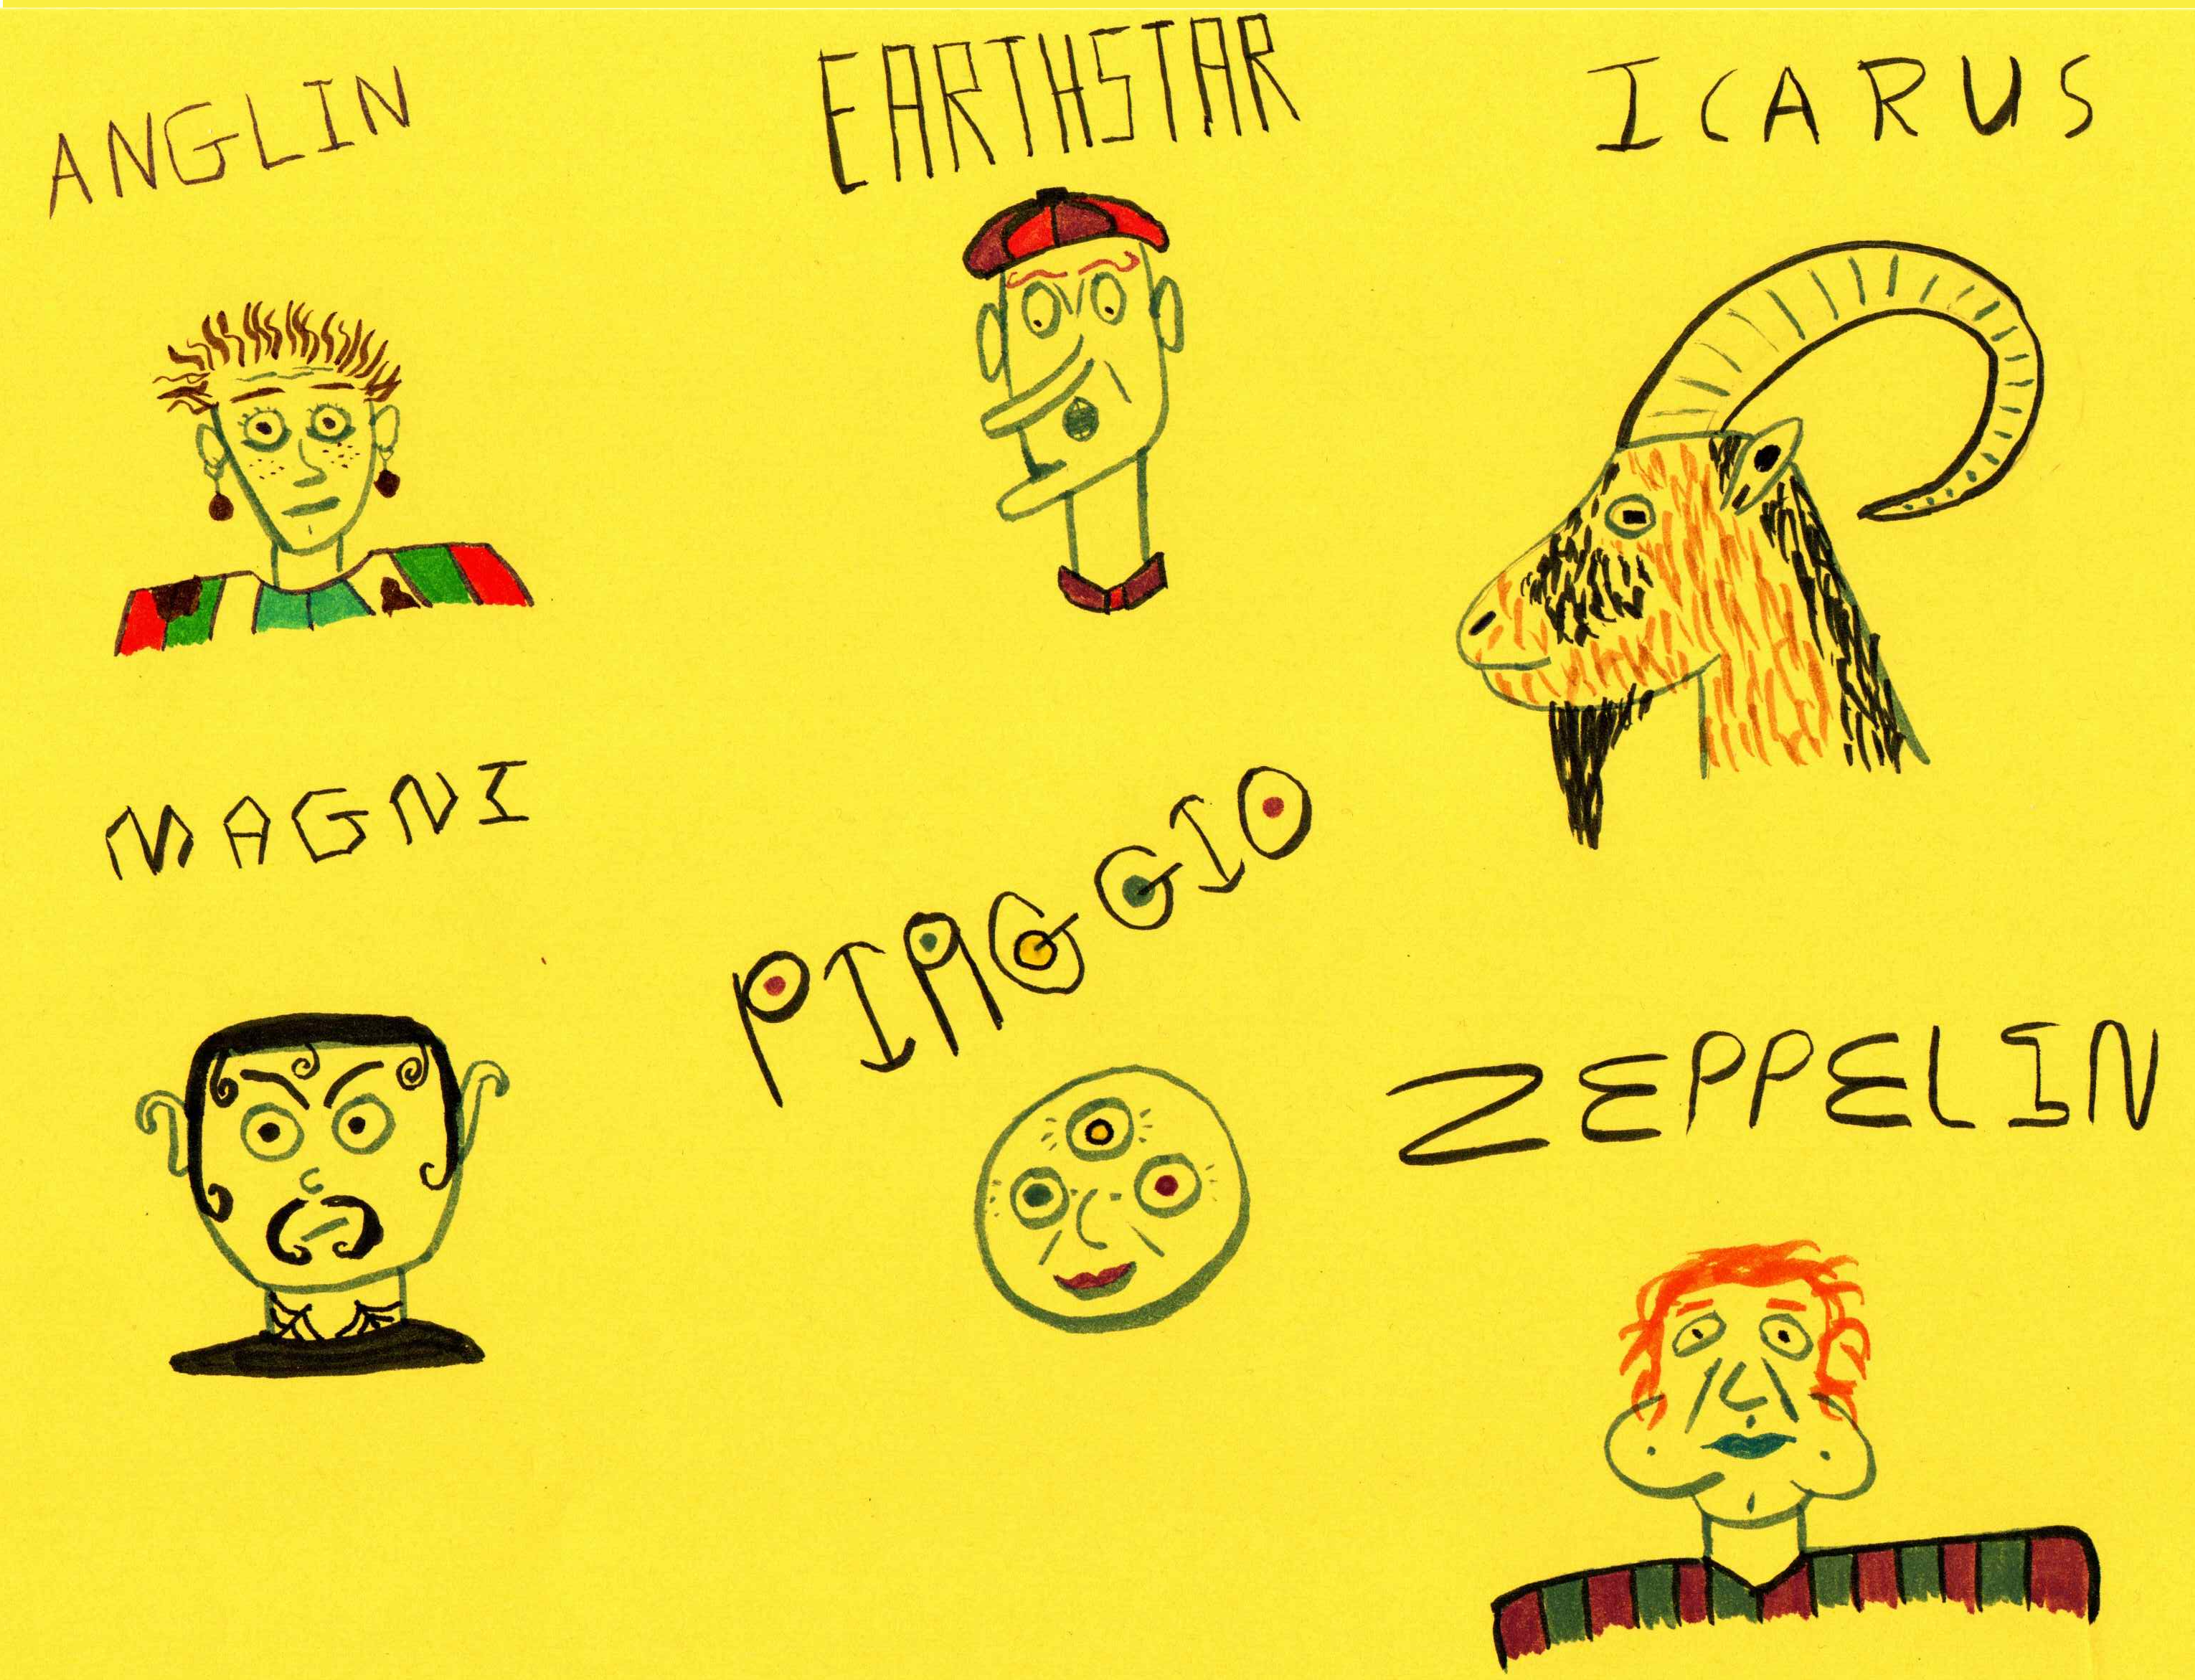 ANGLIN
EARTHSTAR
ICARUS
MAGNI
PIAGGIO
ZEPPELIN